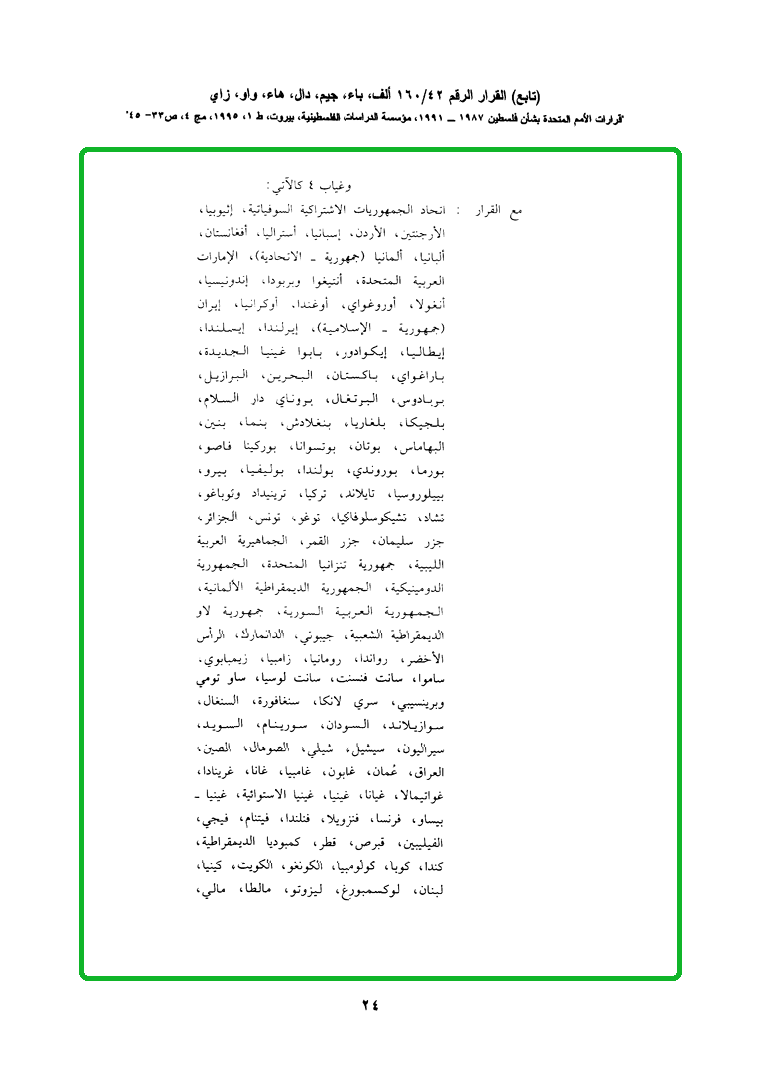 (تابع) القرار الرقم ١٦٠/٤٢ ألف، باء، جيم، دال، هاء، واو، زاي
"قرارات الأمم المتحدة بشأن فلسطين ١٩٨٧ ــ ١٩٩١، مؤسسة الدراسات الفلسطينية، بيروت، ط ١، ١٩٩٥، مج ٤، ص٣٣- ٤٥"
وغياب ٤ كالآتي:
مع القرار : اتحاد الجمهوريات الاشتراكية السوفياتية، إثيوبيا،
الأرجنتين، الأردن، إسبانيا، أستراليا، أفغانستان،
ألبانيا، ألمانيا (جمهورية ـ الاتحادية)، الإمارات
العربية المتحدة، أنتيغوا وبربودا، إندونيسيا،
أنغولا، أوروغواي، أوغندا، أوكرانيا، إيران
(جمهورية ـ الإسلامية)، إيرلندا، إيسلندا،
إيطاليا، إيكوادور، بابوا غينيا الجديدة،
باراغواي، باكستان، البحرين، البرازيل،
بربادوس، البرتغال، بروناي دار السلام،
بلجيكا، بلغاريا، بنغلادش، بنما، بنين،
البهاماس، بوتان، بوتسوانا، بوركينا فاصو،
بورما، بوروندي، بولندا، بوليفيا، بيرو،
بييلوروسيا، تايلاند، تركيا، ترينيداد وتوباغو،
تشاد، تشيكوسلوفاكيا، توغو، تونس، الجزائر،
جزر سليمان، جزر القمر، الجماهيرية العربية
الليبية، جمهورية تنزانيا المتحدة، الجمهورية
الدومينيكية، الجمهورية الديمقراطية الألمانية،
الجمهورية العربية السورية، جمهورية لاو
الديمقراطية الشعبية، جيبوتي، الدانمارك، الرأس
الأخضر، رواندا، رومانيا، زامبيا، زيمبابوي،
ساموا، سانت فنسنت، سانت لوسيا، ساو تومي
وبرينسيبي، سري لانكا، سنغافورة، السنغال،
سوازيلاند، السودان، سورينام، السويد،
سيراليون، سيشيل، شيلي، الصومال، الصين،
العراق، عُمان، غابون، غامبيا، غانا، غرينادا،
غواتيمالا، غيانا، غينيا، غينيا الاستوائية، غينيا ـ
بيساو، فرنسا، فنزويلا، فنلندا، فيتنام، فيجي،
الفيليبين، قبرص، قطر، كمبوديا الديمقراطية،
كندا، كوبا، كولومبيا، الكونغو، الكويت، كينيا،
لبنان، لوكسمبورغ، ليزوتو، مالطا، مالي،
٢٤